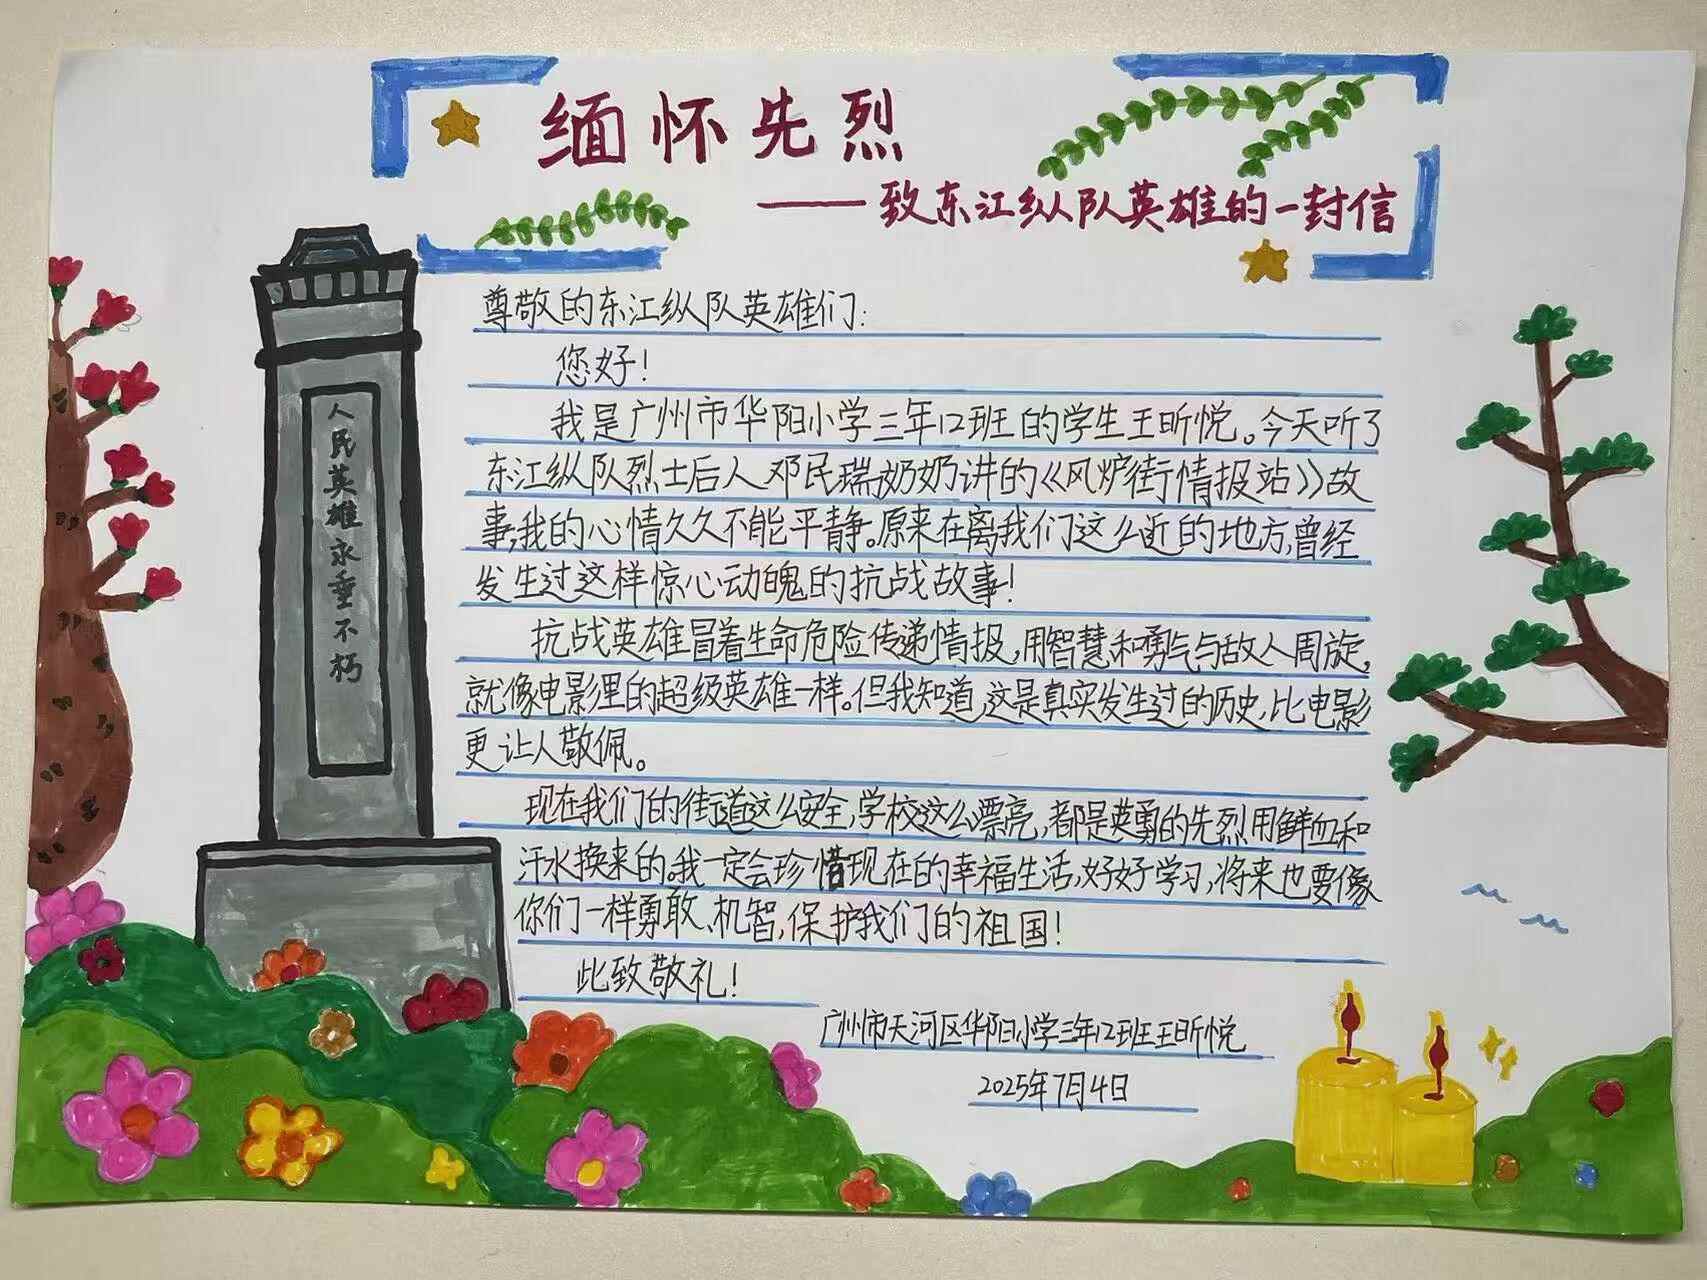 缅怀先烈
——致东江纵队英雄的一封信
人民英雄永垂不朽
尊敬的东江纵队英雄们:
您好!
我是广州市华阳小学三年12班的学生王昕悦。今天听了
东江纵队烈士后人邓民瑞奶奶讲的《风炉街情报站》故
事,我的心情久久不能平静。原来在离我们这么近的地方,曾经
发生过这样惊心动魄的抗战故事!
抗战英雄冒着生命危险传递情报,用智慧和勇气与敌人周旋,
就像电影里的超级英雄一样。但我知道,这是真实发生过的历史,比电影
更让人敬佩。
现在我们的街道这么安全,学校这么漂亮,都是英勇的先烈用鲜血和
汗水换来的。我一定会珍惜现在的幸福生活,好好学习,将来也要像
你们一样勇敢、机智,保护我们的祖国!
此致敬礼!
广州市天河区华阳小学三年12班王昕悦
2025年7月4日